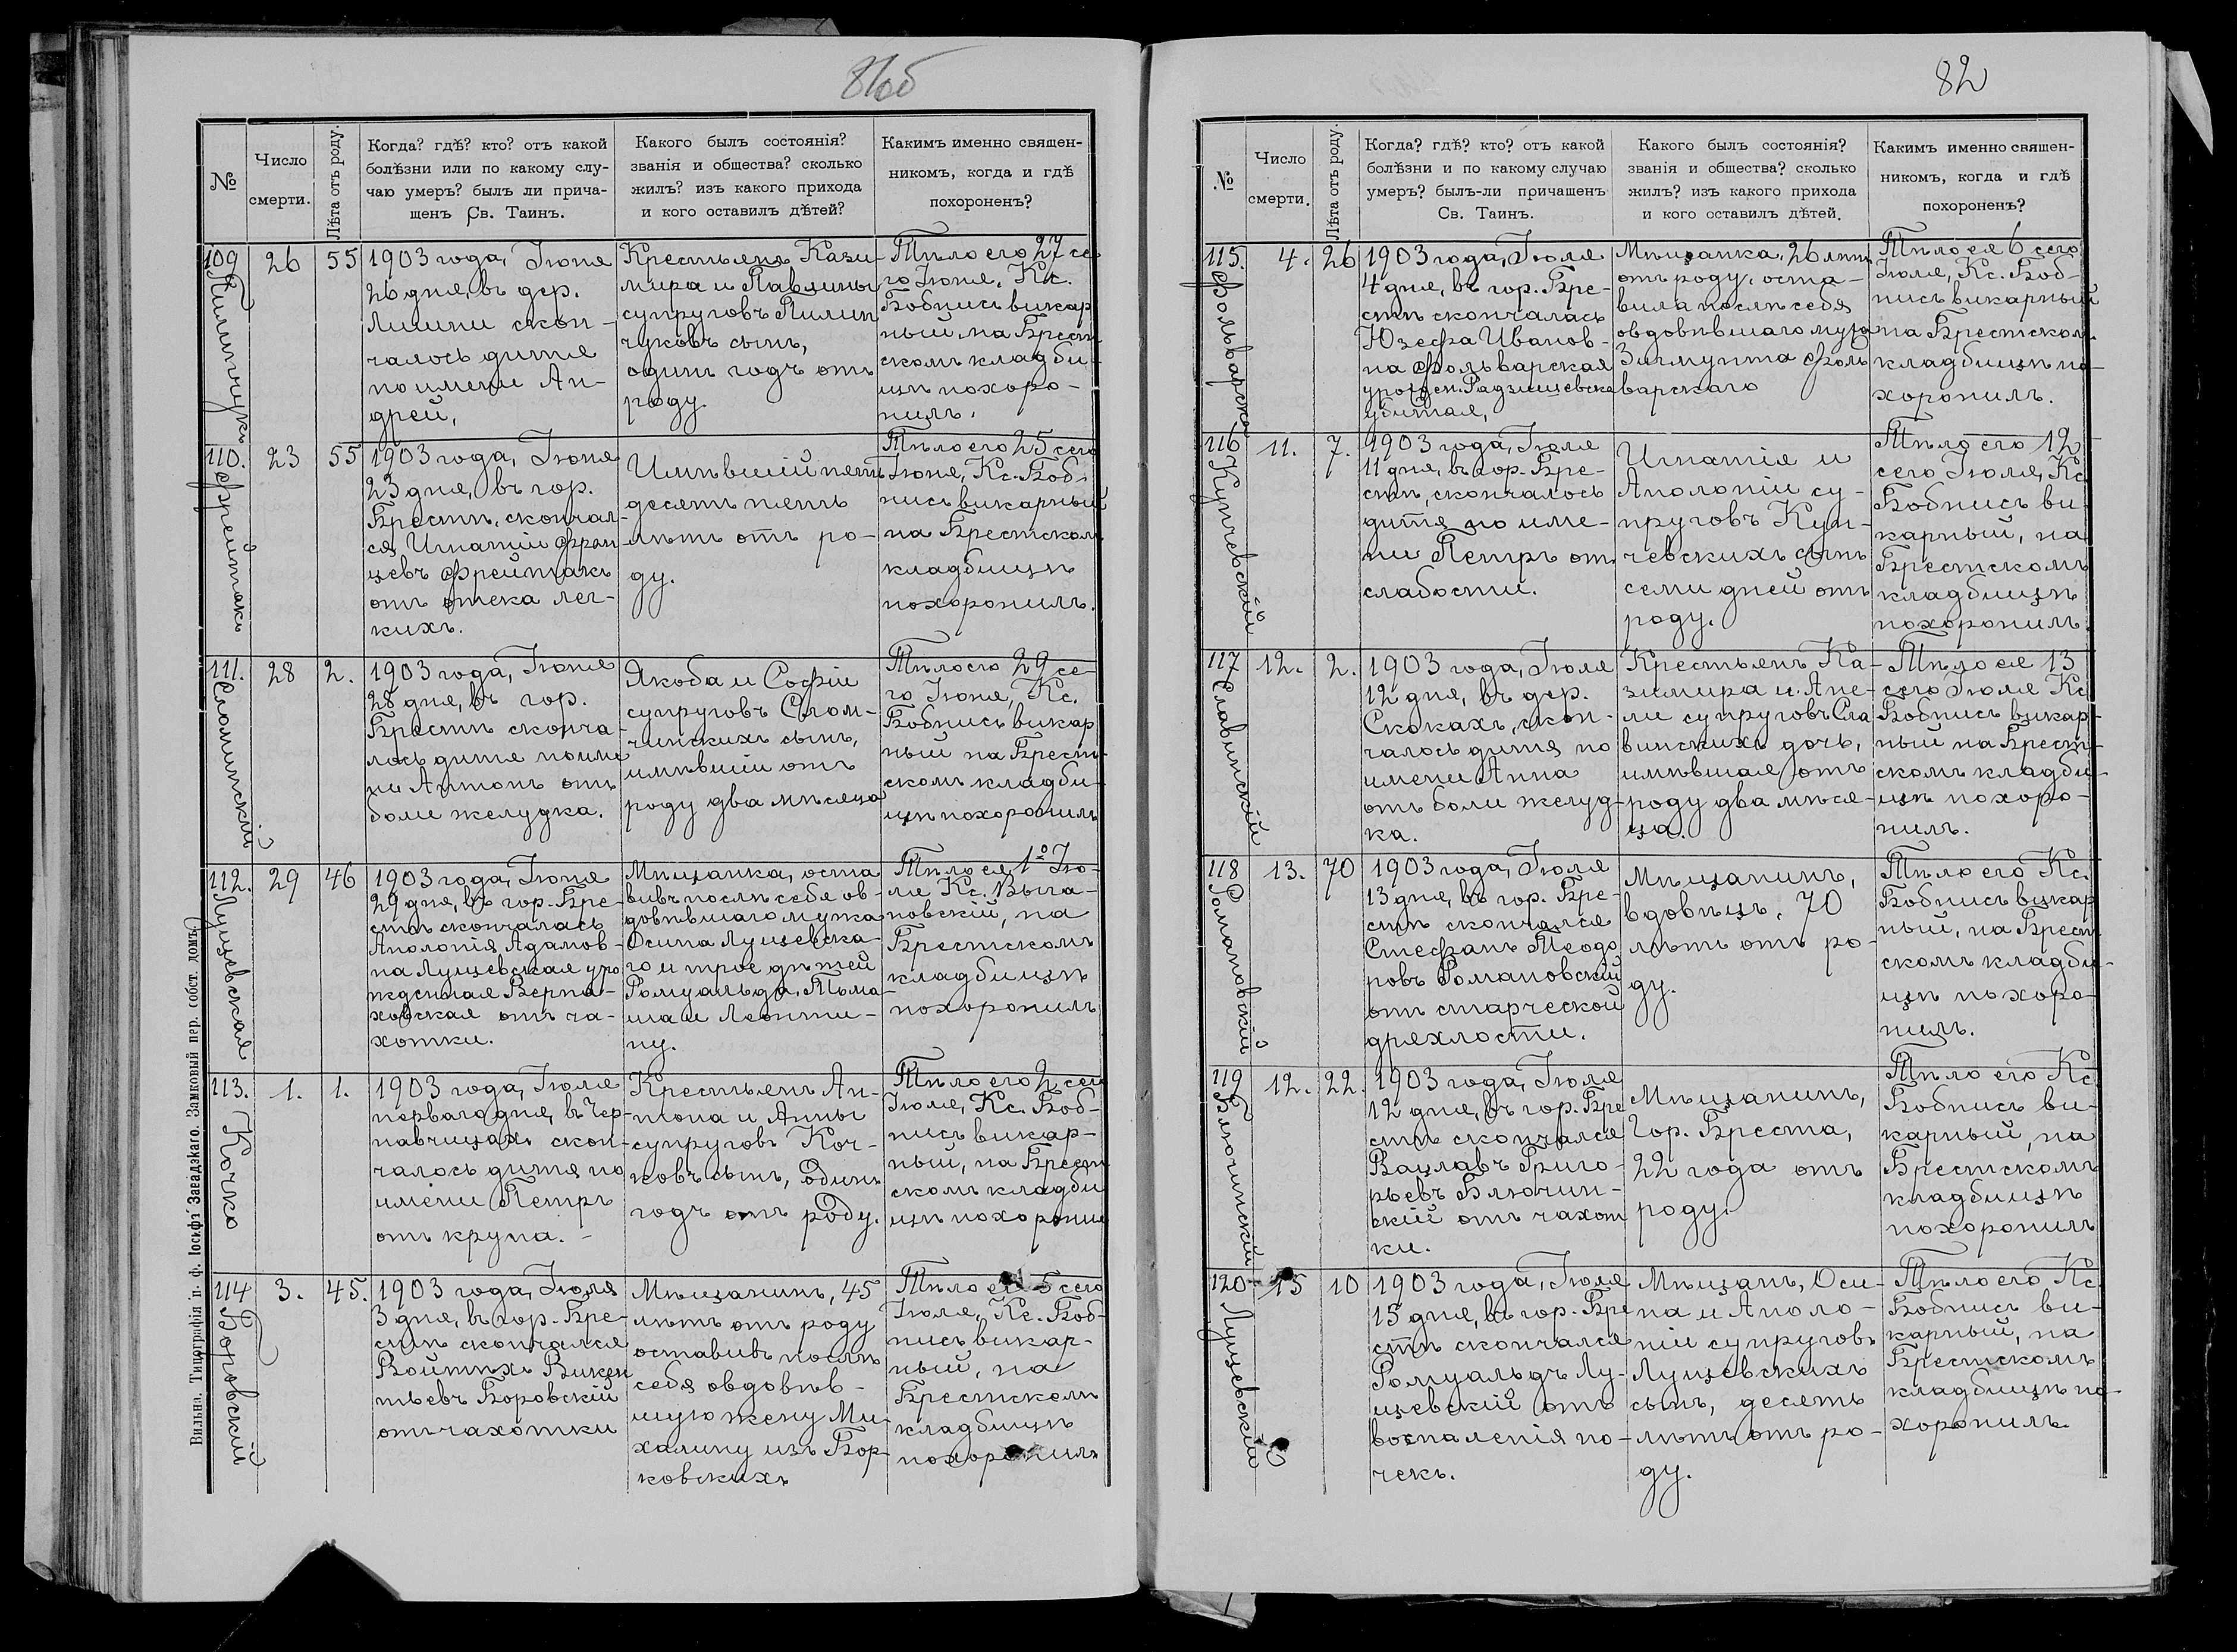 81об
№
Число
смерти.
Лѣта отъ роду.
Когда? гдѣ? кто? отъ какой
болѣзни или по какому слу-
чаю умеръ? былъ ли прича-
щенъ Св. Таинъ.
Какого былъ состоянія?
званія и общества? сколько
жилъ? изъ какого прихода
и кого оставилъ дѣтей?
Какимъ именно священ-
никомъ, когда и гдѣ
похороненъ?
109
Пилипчукъ
26
55
1903 года, Іюня
26 дня, въ дер.
скон-
чалось дитя
по имени Ан-
дрей,
Крестьянъ Кази-
мира и Павлины
супруговъ Пилип
чуковъ сынъ,
одинъ годъ отъ
роду
Тѣло его 27 се
го Іюня, Кс.
Бобнисъ викар
ный на Брест
скомъ кладби-
щѣ похоро-
нилъ.
110.
Фрейтакъ
23
55
1903 года, Іюня
23 дня, въ гор.
Брестѣ, скончал-
ся Игнатій Фран
цевъ Фрейтакъ
отъ отека лег-
кихъ.
Имѣвшій пять
десятъ пять
лѣтъ отъ ро-
ду.
Тѣло его 25 сего
Іюня, Кс. Боб-
нисъ викарный
на Брестскомъ
кладбищѣ
похоронилъ.
111.
Сломинскій
28
2.
1903 года, Іюня
28 дня, въ гор.
Брестѣ сконча-
лось дитя по име
ни Антонъ отъ
боли желудка.
Якоба и Софіи
супруговъ Слом-
чинскихъ сынъ,
имѣвшій отъ
роду два мѣсяца
Тѣло его 29 се-
го Іюня, Кс.
Бобнисъ викар
ный на Брест-
скомъ кладби-
щѣ похоронилъ
112.
Лущевская
29
46
1903 года, Іюня
29 дня, въ гор. Бре-
стѣ скончалась
Аполонія Адамов-
на Лущевская уро
жденная Верна-
ховская отъ ча-
хотки.
Мѣщанка, оста
вивъ послѣ себя ов-
довѣвшаго мужа
Осипа Лущевска-
го и трое дѣтей
Ромуальда, Тома-
ша и Леонти-
ну.
Тѣло ея 1º Ію-
ля Кс. Выга-
новскій, на
Брестскомъ
кладбищѣ
похоронилъ
113.
Кочко
1.
1.
1903 года, Іюля
перваго дня, въ Чер-
навчицахъ скон-
чалось дитя по
имени Петръ
отъ крупа. -
Крестьянъ Ан-
тона и Анны
супруговъ Коч-
ковъ сынъ, одинъ
годъ отъ роду.
Тѣло его 2 сего
Іюля, Кс. Боб-
нисъ викар-
ный, на Брест
скомъ кладби
щѣ похоронилъ
114
Боровскій
3.
45.
1903 года, Іюля
3 дня, въ гор. Бре-
стѣ скончался
Войтѣхъ Викен
тьевъ Боровскій
отъ чахотки
Мѣщанинъ, 45
лѣтъ отъ роду
оставивъ послѣ
себя овдовѣв-
шую жену Ми-
халину изъ Бор-
ковскихъ
Тѣло его 5 сего
Іюля, Кс. Боб-
нисъ викар-
ный, на
Брестскомъ
кладбищѣ
похоронилъ
Вильна. Типографія п. ф. Іосифъ Завадзкаго. Замковый пер. собст. домъ.
82
№
Число
смерти.
Лѣта отъ роду.
Когда? гдѣ? кто? отъ какой
болѣзни и по какому случаю
умеръ? былъ-ли причащенъ
Св. Таинъ.
Какого былъ состоянія?
званія и общества? сколько
жилъ? изъ какого прихода
и кого оставилъ дѣтей.
Какимъ именно священ-
никомъ, когда и гдѣ
похороненъ?
115.
4.
26
1903 года, Іюля
4 дня, въ гор. Бре-
стѣ скончалась
Юзефа Иванов-
на Фольварская
урожден. Радзишевска
убитая,
Мѣщанка, 26 лѣтъ
отъ роду, оста-
вила послѣ себя
овдовѣвшаго мужа
Зигмунта Фоль
варскаго
Тѣло ея 6 сего
Іюля, Кс. Боб-
нисъ викарный
на Брестском.
кладбищѣ по-
хоронилъ.
116
Купчевскій
11.
7.
1903 года, Іюля
11 дня, въ гор. Бре-
стѣ, скончалось
дитя по име-
ни Петръ отъ
слабости.
Игнатія и
Аполоніи су-
пруговъ Куп-
чевскихъ сынъ
семи дней отъ
роду.
Тѣло его 12
сего Іюля, Кс.
Бобнисъ ви-
карный, на
Брестскомъ
кладбищѣ
похоронилъ
117
Славинскій
12.
2.
1903 года, Іюля
12 дня, въ дер.
Скокахъ, скон-
чалось дитя по
имени Анна
отъ боли желуд-
ка.
Крестьянъ Ка-
зимира и Ане-
ли супруговъ Сла
винскихъ дочь,
имѣвшая отъ
роду два мѣся-
ца.
Тѣло ея 13
сего Іюля Кс.
Бобнисъ викар-
ный на Брест-
скомъ кладби-
щѣ похоро-
нилъ.
118
Романовскій
13.
70
1903 года, Іюля
13 дня, въ гор. Бре-
стѣ скончался
Стефанъ Теодо
ровъ Романовскій
отъ старческой
дряхлости.
Мѣщанинъ,
вдовецъ, 70
лѣтъ отъ ро-
ду.
Тѣло его Кс.
Бобнисъ викар
ный, на Брест
скомъ кладби-
щѣ похоро-
нилъ.
119
Блючинскій
12.
22.
1903 года, Іюля
12 дня, въ гор. Бре
стѣ скончался
Вацлавъ Григо-
рьевъ Блючин-
скій отъ чахот
ки.
Мѣщанинъ,
гор. Бреста,
22 года отъ
роду.
Тѣло его Кс.
Бобнисъ ви-
карный, на
Брестскомъ
кладбищѣ
похоронилъ
120
Лущевскій
15
10
1903 года, Іюля
15 дня, въ гор. Бре
стѣ скончался
Ромуальдъ Лу-
щевскій отъ
воспаленія по-
чекъ.
Мѣщанъ, Оси-
па и Аполо-
ніи супруговъ
Лущевскихъ
сынъ, десять
лѣтъ отъ ро-
ду.
Тѣло его Кс.
Бобнисъ ви-
карный, на
Брестскомъ
кладбищѣ по-
хоронилъ.